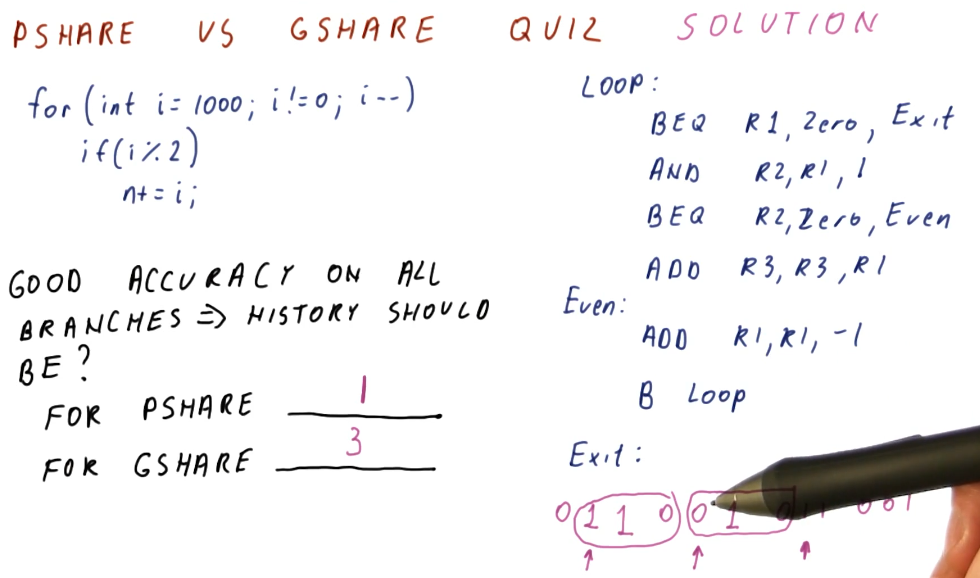 PSHARE VS GSHARE QUIZ SOLUTION
for (int i= 1000; i!=0; i--)
if(i%2)
n+=i;
GOOD ACCURACY ON ALL
BRANCHES ⇒ HISTORY SHOULD
BE?
FOR PSHARE 1
FOR GSHARE 3
LOOP:
BEQ R1, Zero, Exit
AND R2, R1, 1
BEQ R2, Zero, Even
ADD R3, R3, R1
Even:
ADD R1, R1, -1
B Loop
Exit:
0 1 1 0 0 1 0